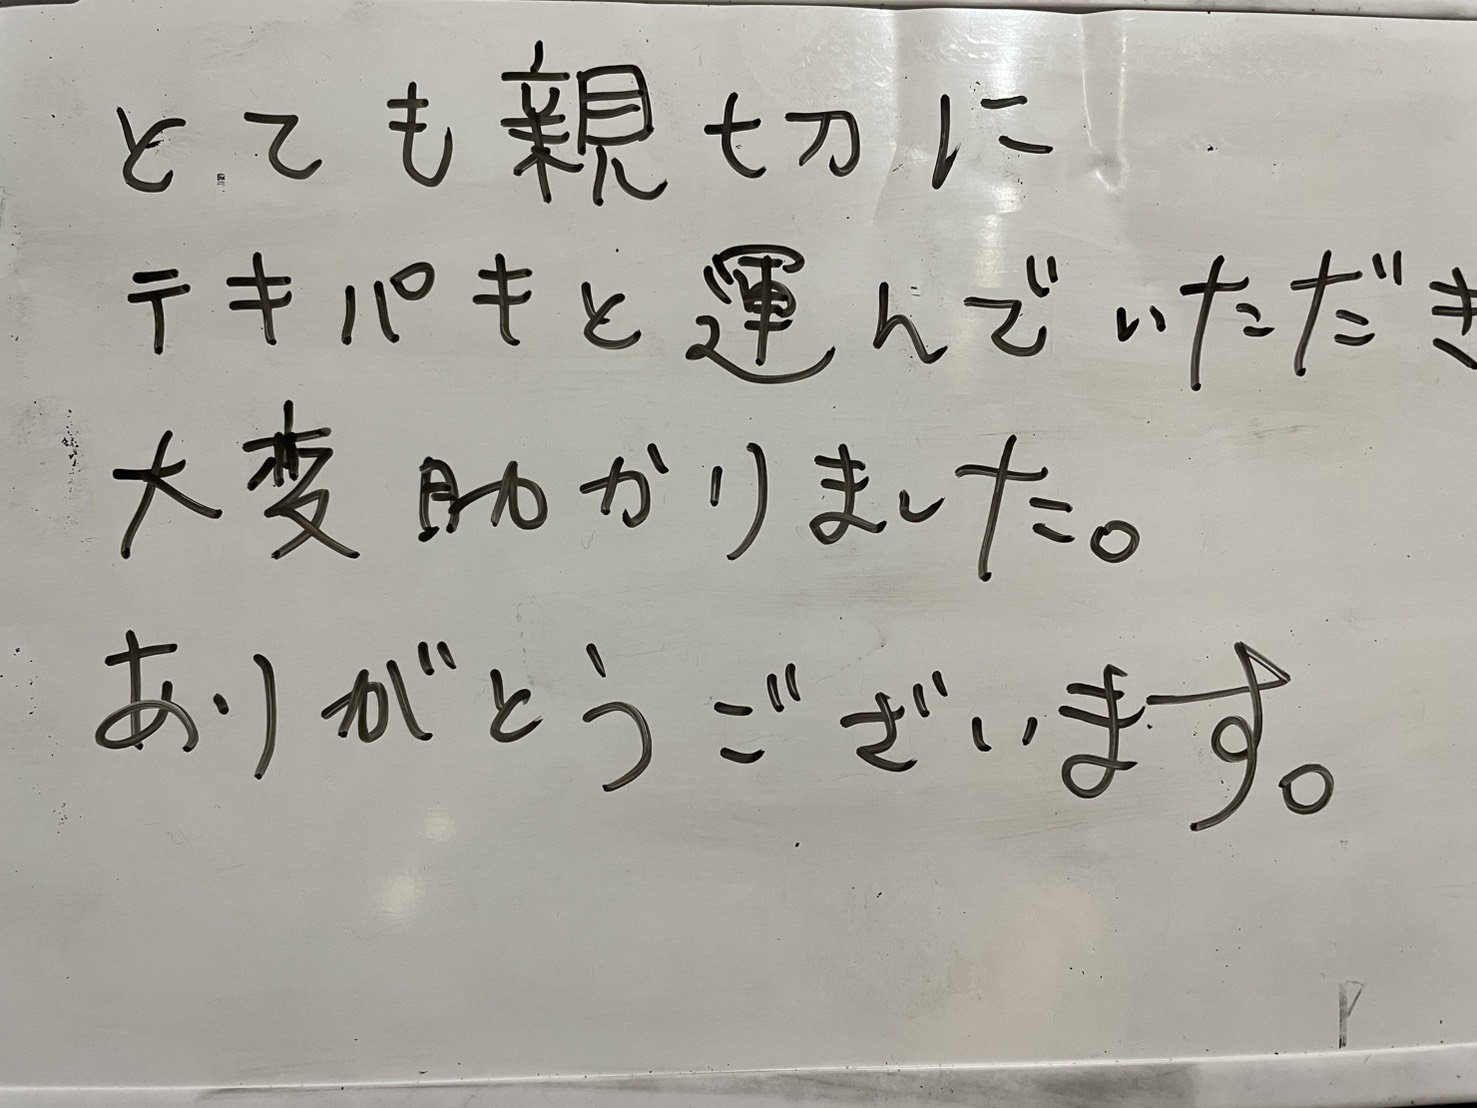 とても親切に
テキパキと運んでいただき
大変助かりました。
ありがとうございます。